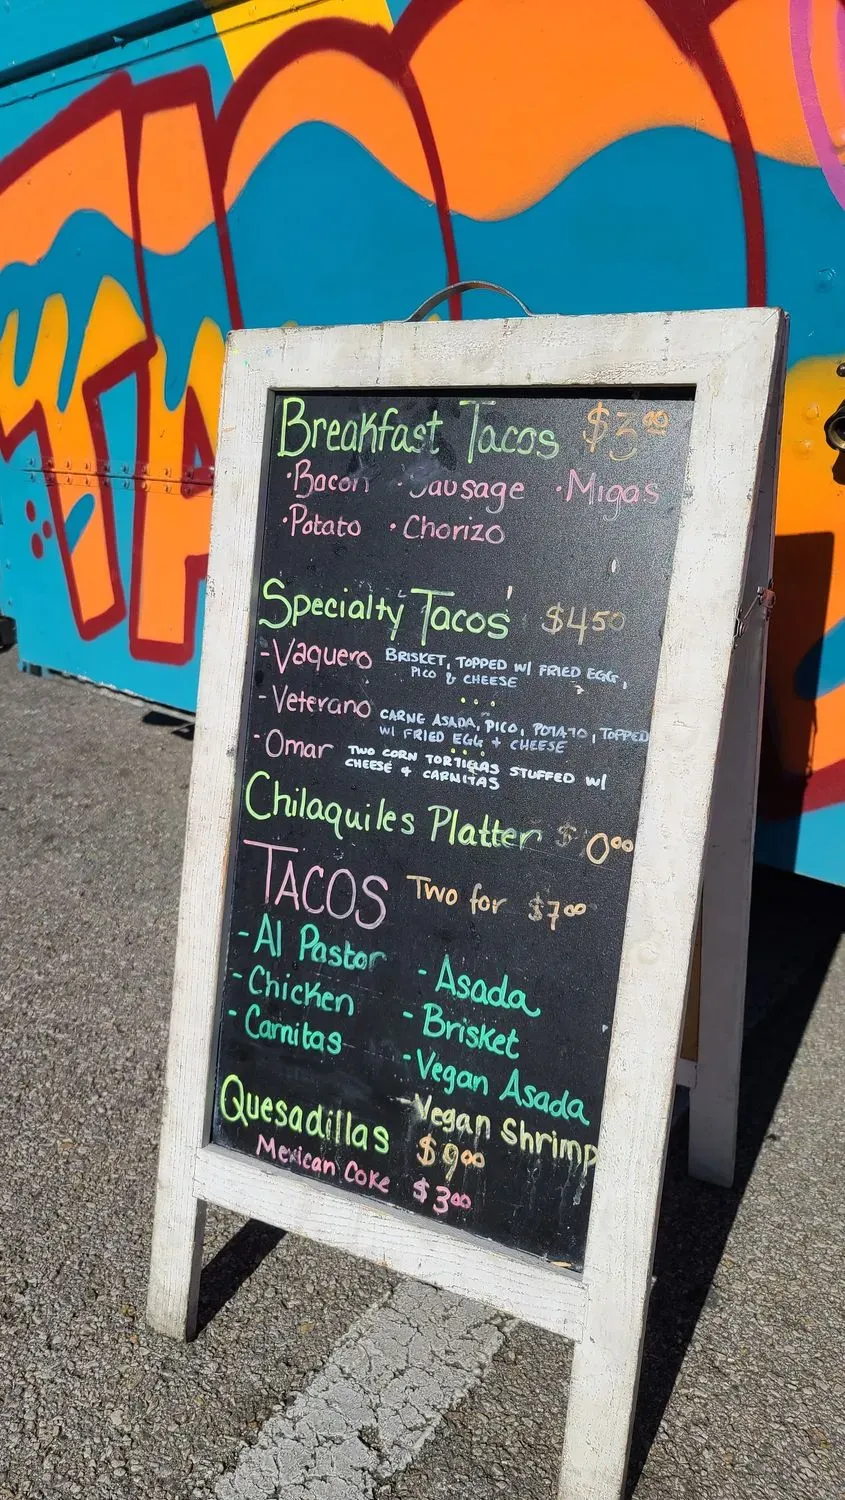 Breakfast Tacos $3.00
·Bacon ·Sausage ·Migas
·Potato ·Chorizo
Specialty Tacos $4.50
-Vaquero BRISKET, TOPPED W/ FRIED EGG,
PICO & CHEESE
-Veterano CARNE ASADA, PICO, POTATO, TOPPED
W/ FRIED EGG + CHEESE
·Omar TWO CORN TORTILLAS STUFFED W/
CHEESE + CARNITAS
Chilaquiles Platter $ 0.00
TACOS Two for $7.00
-Al Pastor -Asada
-Chicken -Brisket
-Carnitas -Vegan Asada
-Vegan Shrimp
Quesadillas $9.00
Mexican Coke $3.00